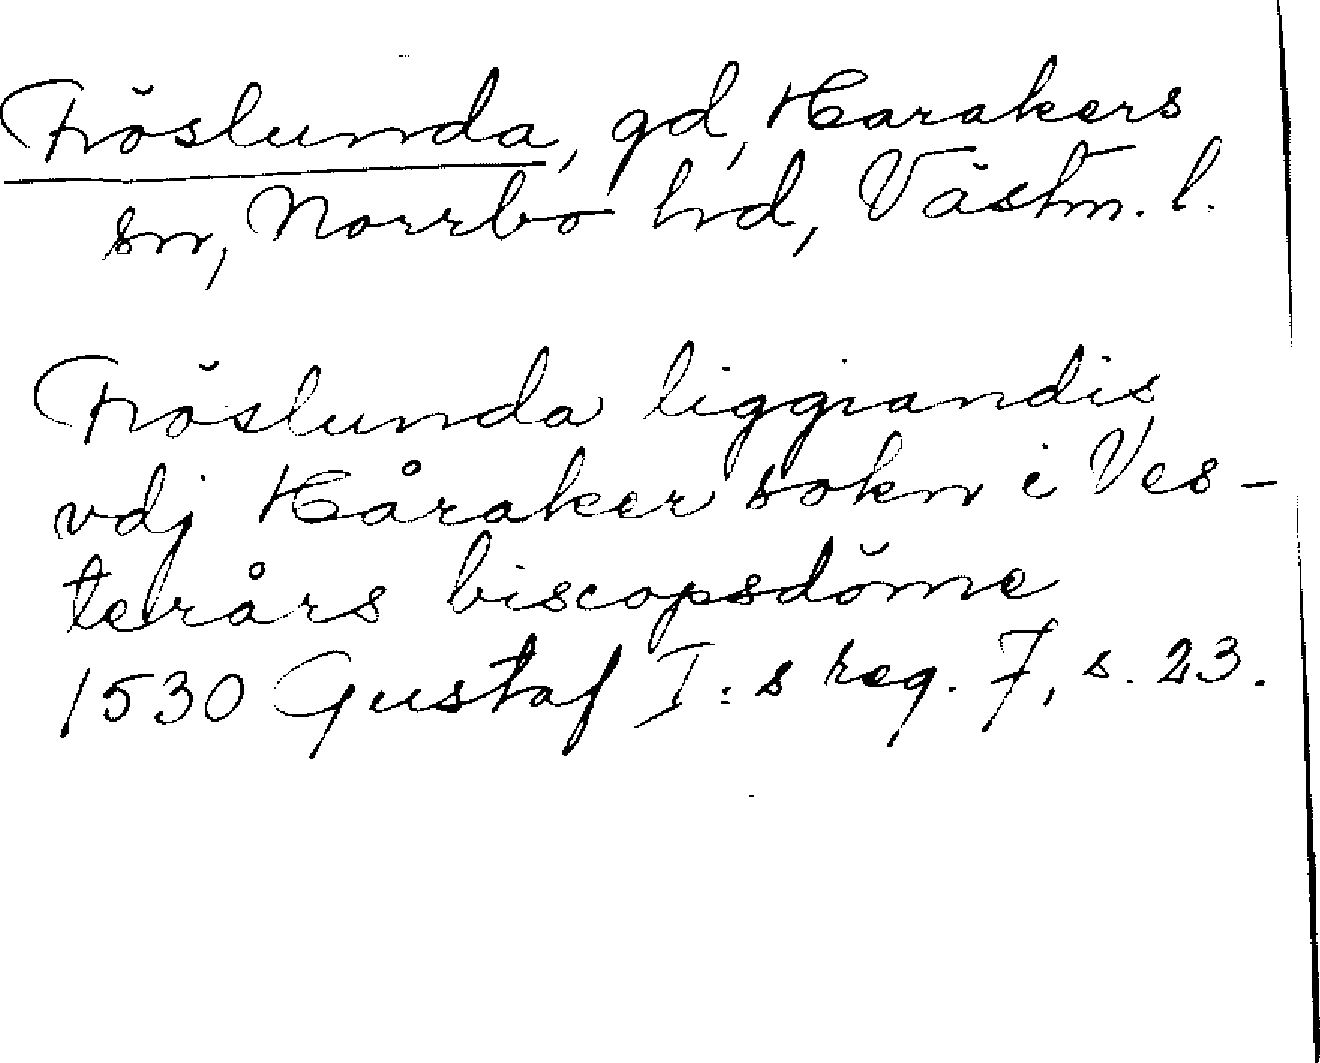 Fröslunda, gd, Harakers
sn, Norrbo hd, Västm. l.
Fröslunda liggiandis
vdj Håraker sokn i Ves-
terårs biscopsdöme
1530 Gustaf I:s reg. 7, s. 23.